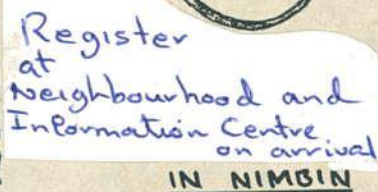 Register
at
Neighbourhood and
Information Centre
on arrival
IN NIMBIN